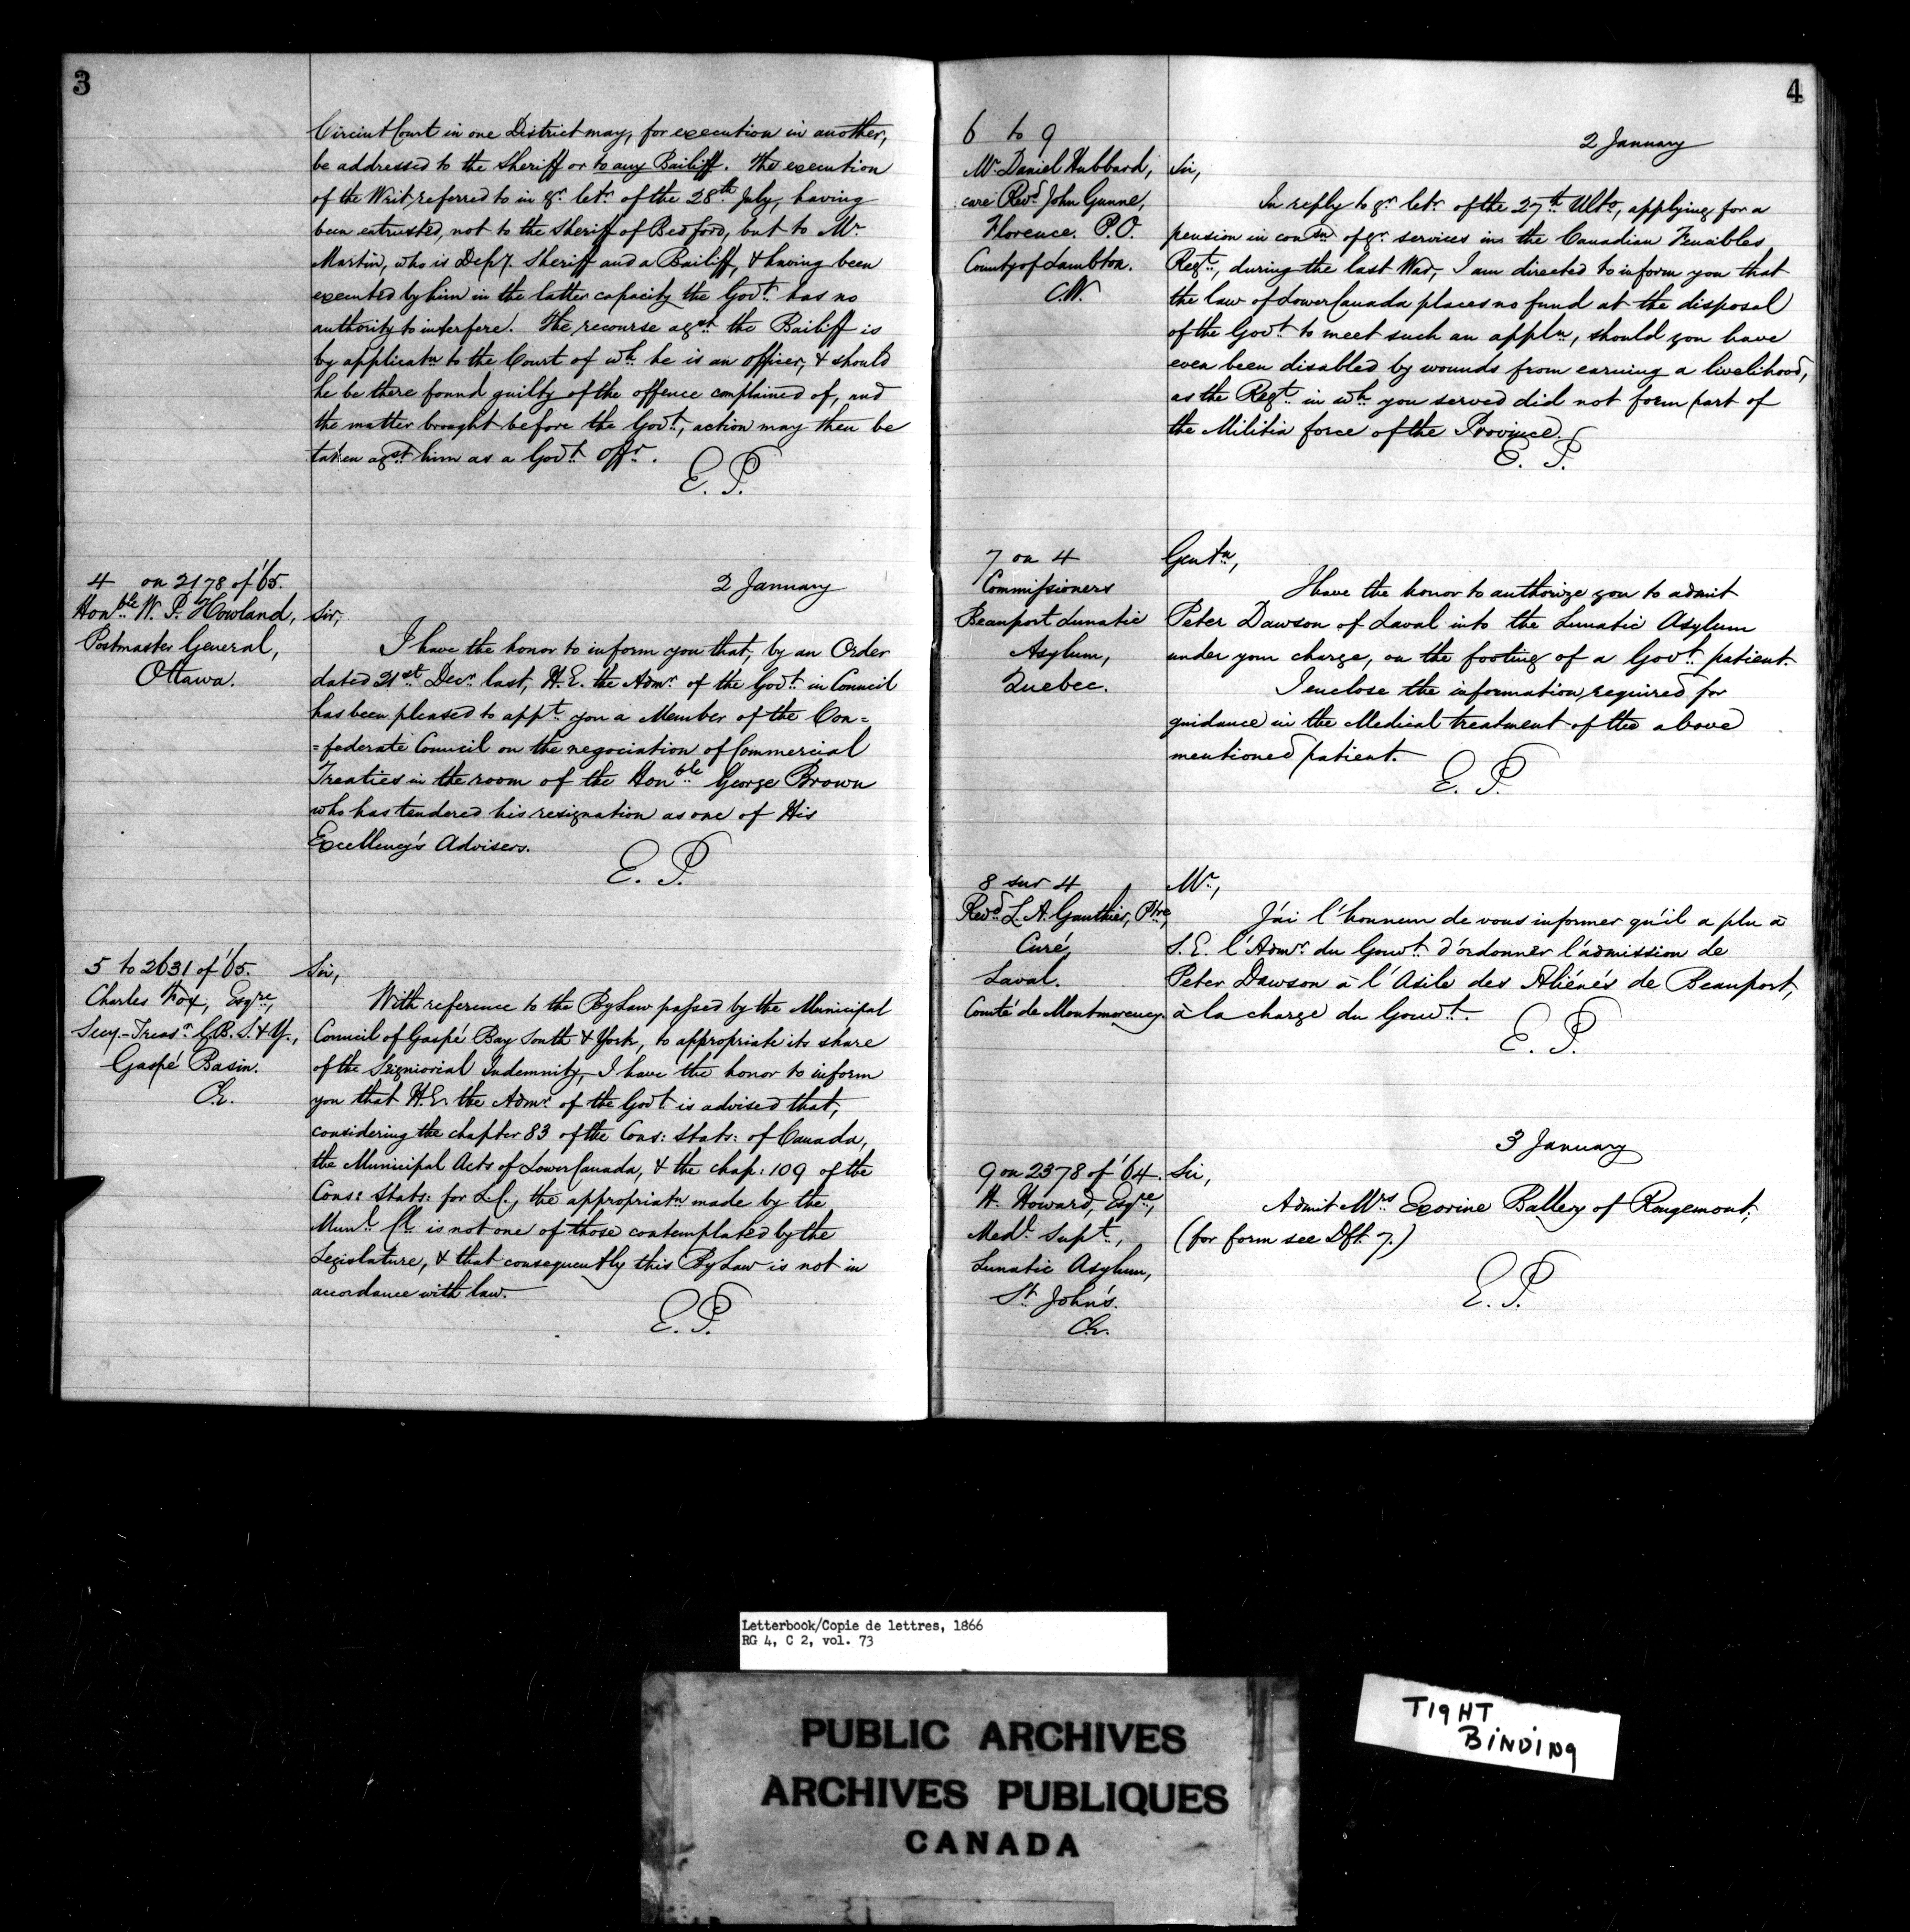 3
Circuit Court in one District may, for execution in another,
be addressed to the Sheriff or to any Bailiff. The execution
of the Writ, referred to in yr. letr. of the 28th July, having
been entrusted, not to the Sheriff of Bedford, but to Mr.
Martin, who is Depy. Sheriff and a Bailiff, & having been
executed by him in the latter capacity the Govt. has no
authority to interfere. The recourse agst. the Bailiff is
by applicatn to the Court of wh. he is an officer, & should
he be there found guilty of the offence complained of, and
the matter brought before the Govt., action may then be
taken agst. him as a Govt. Offr.
E. P.
4 on 2178 of '65.
Honble. W. P. Howland,
Postmaster General,
Ottawa.
2 January
Sir,
I have the honor to inform you that, by an Order
dated 21st. Decr. last, H.E. the Admr. of the Govt. in Council
has been pleased to appt. you a Member of the Con=
=federate Council on the negociation of Commercial
Treaties in the room of the Honble. George Brown
who has tendered his resignation as one of His
Excellency's Advisers.
E. P.
5 to 2631 of '65.
Charles Fox, Esqre.,
Secy.-Treasr. G.B.S. & Y.,
Gaspé Basin.
C.E.
Sir,
With reference to the By Law passed by the Municipal
Council of Gaspé Bay South & York, to appropriate its share
of the Seigniorial Indemnity, I have the honor to inform
you that H.E. the Admr. of the Govt. is advised that,
considering the chapter 83 of the Cons: Stats: of Canada,
the Municipal Acts of Lower Canada, & the chap: 109 of the
Cons: Stats: for L.C., the appropriatn made by the
Munl. Cl. is not one of those contemplated by the
Legislature, & that consequently this By Law is not in
accordance with law.
E. P.
4
6 to 9
Mr. Daniel Hubbard,
care Revd. John Gunne,
Florence. P.O.
County of Lambton.
C.W.
2 January
Sir,
In reply to yr. letr. of the 27th. Ulto., applying for a
pension in consn. of yr. services in the Canadian Fencibles
Regt., during the last War, I am directed to inform you that
the law of Lower Canada places no fund at the disposal
of the Govt. to meet such an appln., should you have
even been disabled by wounds from earning a livelihood,
as the Regt. in wh. you served did not form part of
the Militia force of the Province.
E. P.
7 on 4
Commissioners
Beauport Lunatic
Asylum,
Quebec.
Gentn.,
I have the honor to authorize you to admit
Peter Dawson of Laval into the Lunatic Asylum
under your charge, on the footing of a Govt. patient.
I enclose the information required for
guidance in the Medical treatment of the above
mentioned patient.
E. P.
8 sur 4
Revd. L. A. Gauthier, Ptre,
Curé,
Laval.
Comté de Montmorency.
Mr.,
J'ai l'honneur de vous informer qu'il a plu à
S.E. l'Admr. du Gouvt. d'ordonner l'admission de
Peter Dawson à l'Asile des Aliénés de Beauport,
à la charge du Gouvt.
E. P.
3 January
9 on 2378 of '64.
H. Howard, Esqre.,
Medl. Supt.,
Lunatic Asylum,
St. John's.
C.E.
Sir,
Admit Mrs of Rougemont,
(for form see Dft. 7.)
E. P.
Letterbook/Copie de lettres, 1866
RG 4, C 2, vol. 73
PUBLIC ARCHIVES
ARCHIVES PUBLIQUES
CANADA
TIGHT
BINDING